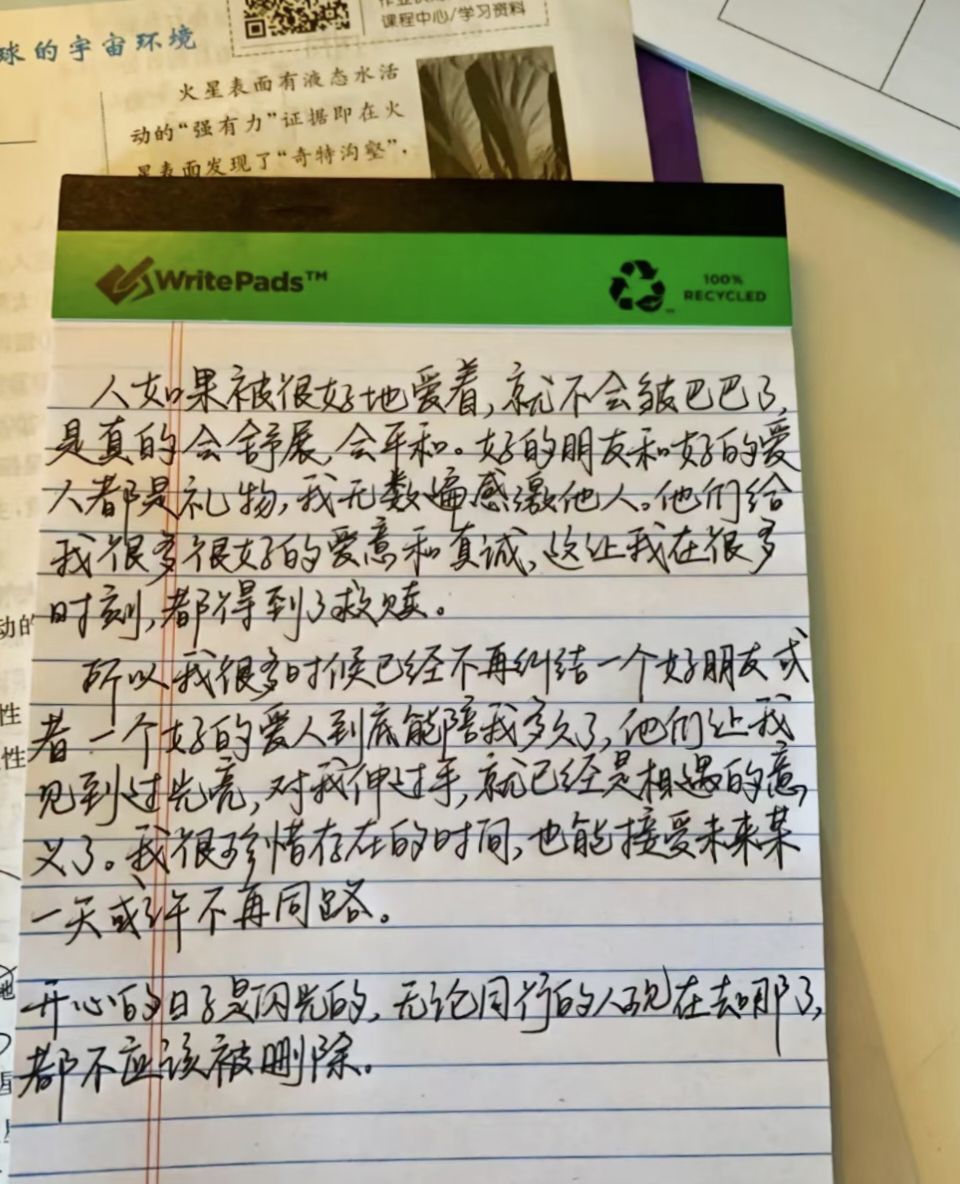 球的宇宙环境
课程中心/学习资料
火星表面有液态水活
动的“强有力”证据即在火
星表面发现了“奇特沟壑”,
WritePads™
100%
RECYCLED
人如果被很好地爱着,就不会皱巴巴了,
是真的会舒展,会平和。好的朋友和好的爱
人都是礼物,我无数遍感激他人。他们给
我很多很好的爱意和真诚,这让我在很多
时刻,都得到了救赎。
所以我很多时候已经不再纠结一个好朋友或
者一个好的爱人到底能陪我多久了,他们让我
见到过光亮,对我伸过手,就已经是相遇的意
义了。我很珍惜存在的时间,也能接受未来某
一天或许不再同路。
开心的日子是闪光的,无论同行的人现在去哪了,
都不应该被删除。
动的
性
性
地
星